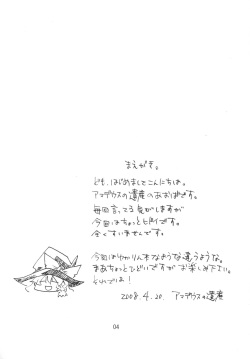 まえがき。
ども、はじめましてこんにちは。
アマデウスの遺産のあおばずです。
毎回言ってる気がしますが
今回はちょっとヒドイです。
全くすいませんです。
今回はゆかりん本なような違うような。
まあちょっとひどいですがお楽しみ下さい。
といいでは！
2008.4.20. アマデウスの遺産
04